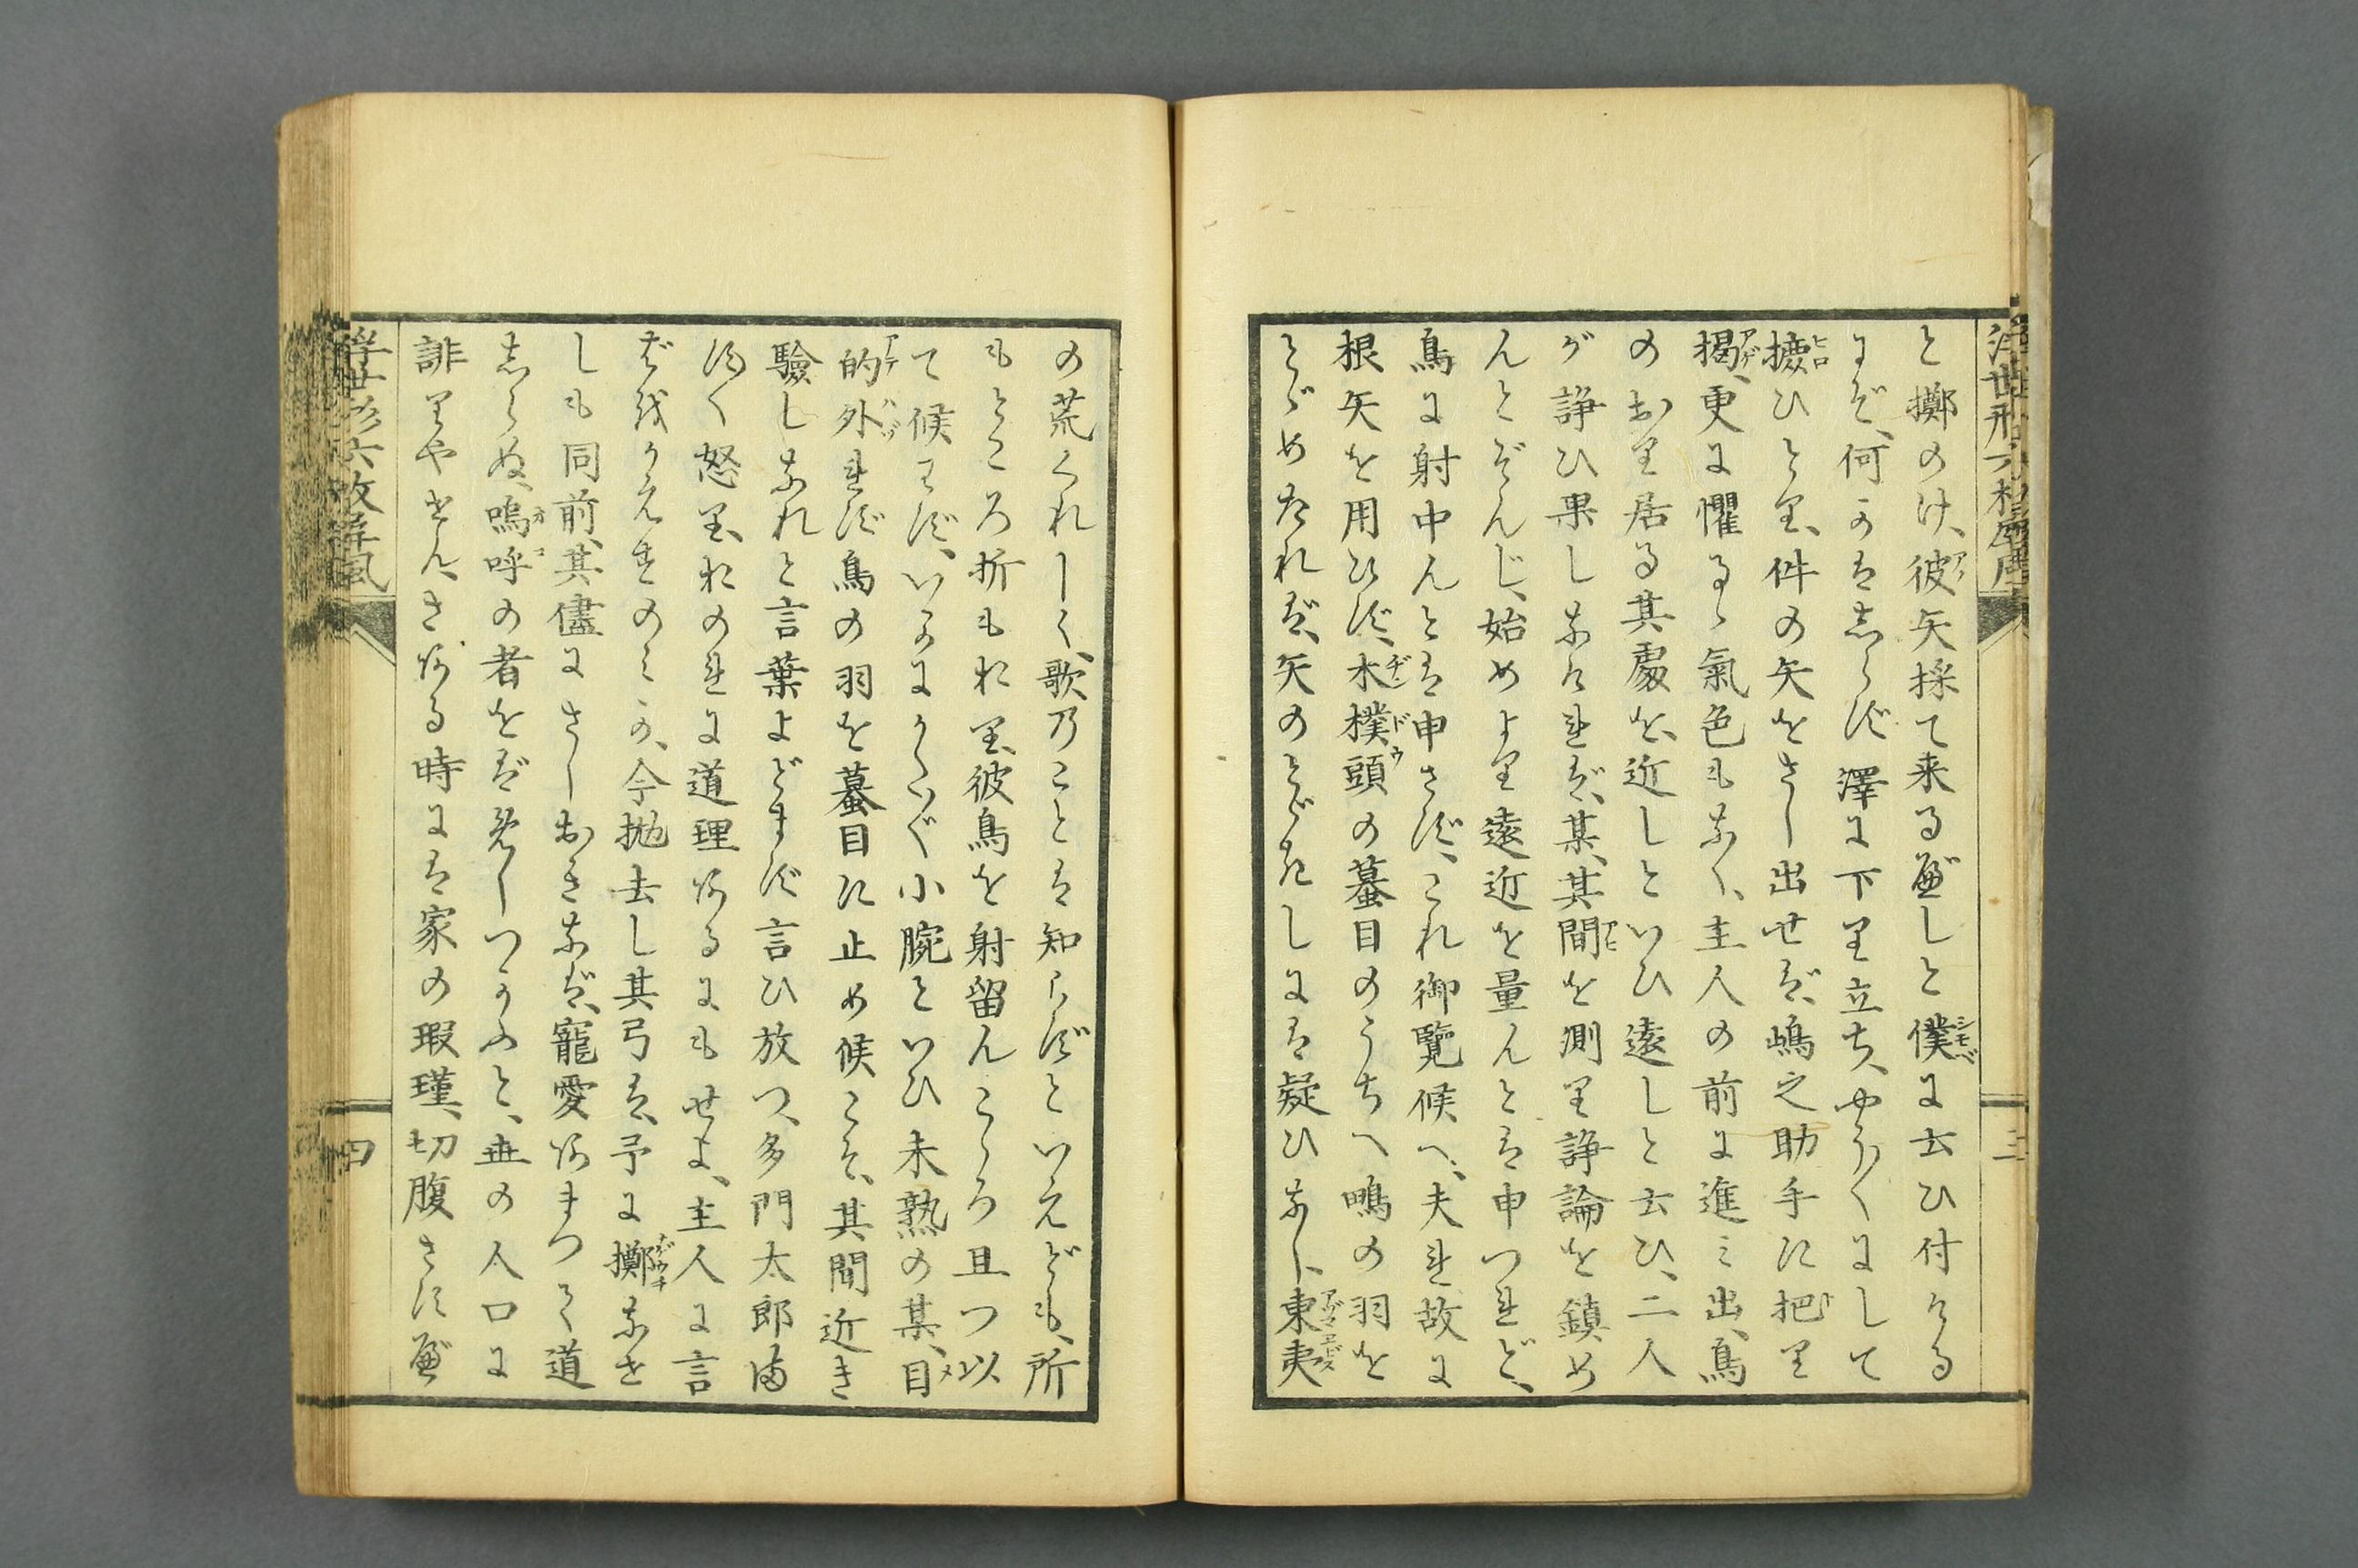 と擲のけ、彼矢採て来る可しと僕に云ひ付ける
にぞ、何かはしらず澤に下り立ち、やう〱にして
摭ひとり、件の矢をさし出せば、嶋之助手に把り
揭、更に懼るゝ氣色もなく、主人の前に進み出、鳥
のおり居る其處を、近しといひ遠しと云ひ、二人
が諍ひ果しなければ、某、其間を測り諍論を鎮め
んとぞんじ、始めより遠近を量んとは申つれど、
鳥に射中んとは申さず、これ御覽候へ、夫れ故に
根矢を用ひず、木樸頭の蟇目のうちへ鴫の羽を
とゞめたれば、矢のとゞきしには疑ひなし、東夷
の荒くれしく、歌乃ことは知らずといえども、所
もところ折もおり、彼鳥を射留んこゝろ且つ以
て候はず、いかにかくいぐ小腕といひ未熟の某、目
的外れず鳥の羽を蟇目に止め候こそ、其間近き
驗しなれと言葉よどまず言ひ放つ、多門太郎ほ
ほく怒り、おのれに道理あるにもせよ、主人に言
しも同前、其儘にさしおきなば、寵愛あまつて道
しらぬ、嗚呼の者をば免しつかふと、世の人口に
誹りやせん、さある時には家の瑕瑾、切腹さす可
浮世形六枚屏風
三
四